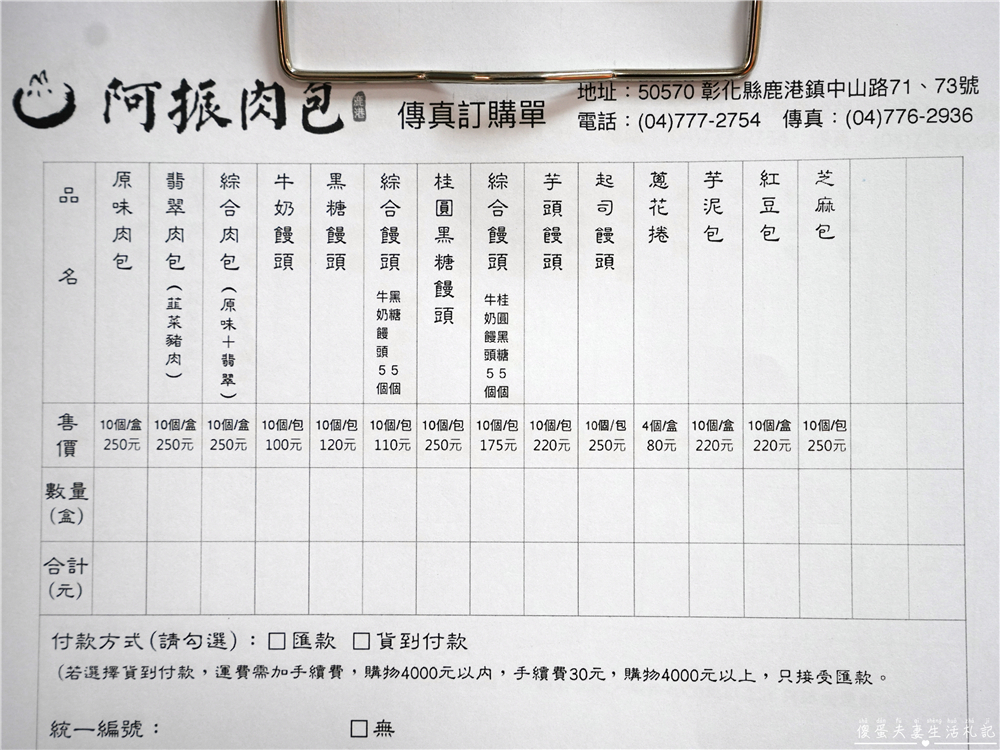 阿振肉包
鹿港
傳真訂購單
地址：50570 彰化縣鹿港鎮中山路71、73號
電話：(04)777-2754 傳真：(04)776-2936
品名
原味肉包
翡翠肉包（韮菜豬肉）
綜合肉包（原味＋翡翠）
牛奶饅頭
黑糖饅頭
綜合饅頭
黑糖 5個
牛奶饅頭 5個
桂圓黑糖饅頭
綜合饅頭
桂圓黑糖5個
牛奶饅頭5個
芋頭饅頭
起司饅頭
蔥花捲
芋泥包
紅豆包
芝麻包
售價
10個/盒 250元
10個/盒 250元
10個/盒 250元
10個/包 100元
10個/包 120元
10個/包 110元
10個/包 250元
10個/包 175元
10個/包 220元
10個/包 250元
4個/盒 80元
10個/盒 220元
10個/盒 220元
10個/包 250元
數量(盒)
合計(元)
付款方式(請勾選)：□匯款 □貨到付款
(若選擇貨到付款，運費需加手續費，購物4000元以內，手續費30元，購物4000元以上，只接受匯款。
統一編號： □無
傻蛋夫妻生活札記